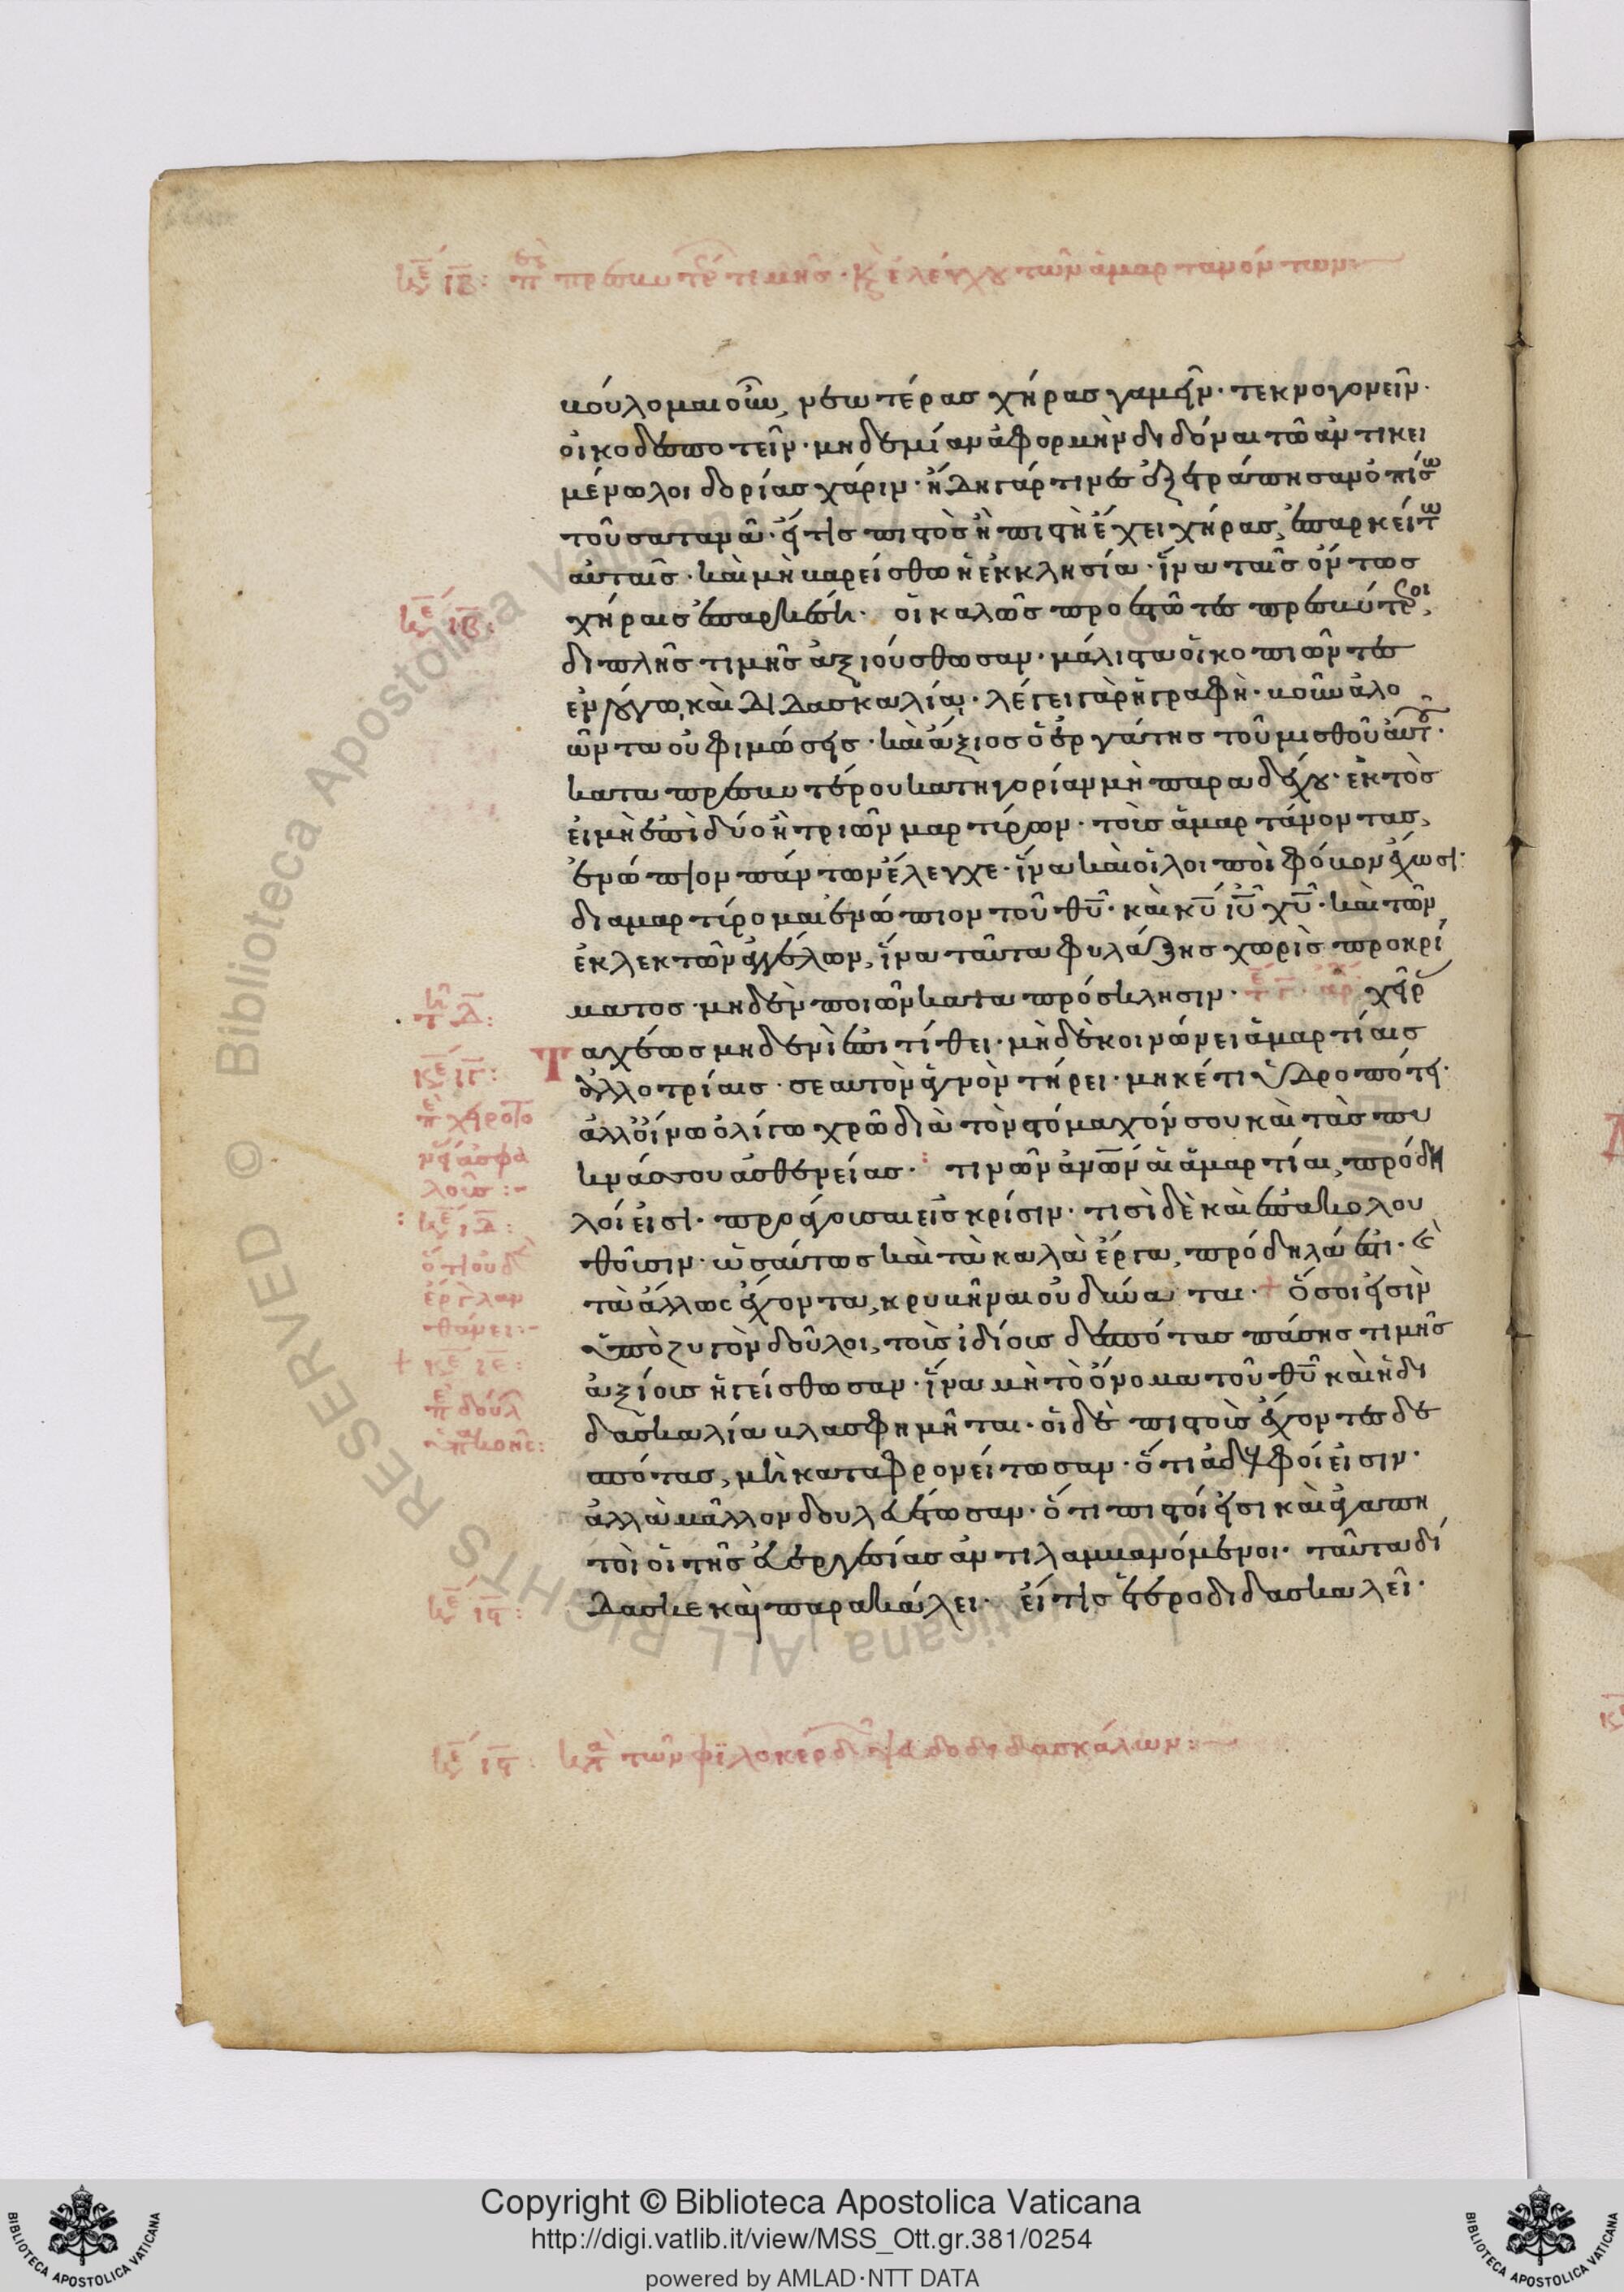 κε ιβ: περι πρεσβυτερ τιμῆσ· κ ἐλέγχου τῶν ἁμαρτανόντων
βούλομαι οὖν, νεωτέρασ χήρασ γαμεῖν· τεκνογονεῖν·
οἰκοδεσποτεῖν· μηδεμίαν ἀφορμὴν διδόναι τῶ ἀντικει
μένω λοιδορίασ χάριν· ἤδη γάρ τινεσ ἐξετράπησαν ὀπίσω
τοῦ σατανᾶ· εἴ τισ πιστὸσ ἢ πιστὴ ἔχει χήρασ, ἐπαρκείτω
αὐταῖσ· καὶ μὴ βαρείσθω ἡ ἐκκλησία· ἵνα ταῖσ ὄντωσ
κε ιβ:
χήραισ ἐπαρκέση· οἱ καλῶσ προεστῶτεσ πρεσβύτεροι,
διπλῆσ τιμῆσ ἀξιούσθωσαν· μάλιστα οἱ κοπιῶντεσ
ἐν λόγω, καὶ διδασκαλία· λέγει γὰρ ἡ γραφὴ· βοῦν ἀλο
ῶντα οὐ φιμώσεισ· καὶ ἄξιοσ ὁ ἐργάτησ τοῦ μισθοῦ αὐτοῦ·
κατα πρεσβυτέρου κατηγορίαν μὴ παραδέχου· ἐκτὸσ
εἰ μὴ ἐπὶ δύο ἢ τριῶν μαρτίρων· τοὺσ ἁμαρτάνοντασ,
ἐνώπιον πάντων ἔλεγχε· ἵνα καὶ οἱ λοιποὶ φόβον ἔχωσι·
διαμαρτίρομαι ἐνώπιον τοῦ θυ· καὶ κυ ιυ χυ· καὶ τῶν
ἐκλεκτῶν ἀγγέλων, ἵνα ταῦτα φυλάξησ χωρὶσ προκρί
ματοσ· μηδὲν ποιῶν κατα πρόσκλησιν· χεῖρ
Δ:
κε ιγ:
Ταχέωσ μηδενὶ ἐπιτίθει· μὴ δὲ κοινώνει ἁμαρτίαισ
ἀλλοτρίαισ· σεαυτὸν ἁγνὸν τήρει· μηκέτι ὑδροπότει·
περι χειροτο
νεῖ ἀσφα
λοῦσ:-
ἀλλ οἴνω ὀλίγω χρῶ διὰ τὸν στόμαχόν σου καὶ τὰσ πυ
κνάσ σου ἀσθενείασ· τινῶν ἀνων αἱ ἁμαρτίαι, πρόδη
κε ιδ:
λοί εἰσι· προάγουσαι εἰσ κρίσιν· τισὶ δὲ καὶ ἐπακολου
ὅτι οὐδὲν
ἔργ λαν
θάνει:-
θοῦσιν· ὡσαύτωσ καὶ τὰ καλὰ ἔργα, πρόδηλά ἐστι· καὶ
τὰ ἄλλως ἔχοντα, κρυβῆναι οὐ δύναται· + ὅσοι εἰσὶν
ὑπὸ ζυγὸν δοῦλοι, τοὺσ ἰδίουσ δεσπότασ πάσησ τιμῆσ
+ κε ιε:
περι δούλ
ὑπακοῆς:
ἀξίουσ ἡγείσθωσαν· ἵνα μὴ τὸ ὄνομα τοῦ θυ καὶ ἡ δι
δασκαλία βλασφημῆται· οἱ δὲ πιστοὺσ ἔχοντεσ δε
σπότασ, μὴ καταφρονείτωσαν· ὅτι ἀδελφοί εἰσιν·
ἀλλὰ μᾶλλον δουλευέτωσαν· ὅτι πιστοί εἰσι καὶ ἀγαπη
τοὶ οἱ τῆσ εὐεργεσίασ ἀντιλαμβανόμενοι· ταῦτα δί
κε ις:
δασκε καὶ παρακάλει· εἴ τισ ἑτεροδιδασκαλεῖ·
κε ις: κατα τῶν φιλοκερδῶν ψευδοδιδασκάλων:
Copyright © Biblioteca Apostolica Vaticana
http://digi.vatlib.it/view/MSS_Ott.gr.381/0254
powered by AMLAD·NTT DATA
BIBLIOTECA APOSTOLICA VATICANA
BIBLIOTECA APOSTOLICA VATICANA